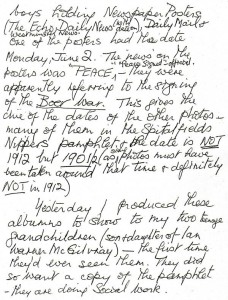 boys holding Newspaper Posters
(The Echo, Daily News, Daily Mail &
Westminster News.
One of the posters had the date
Monday, June 2. The news on the
posters was "PEACE," "Peace Signed - official" they were
apparently referring to the signing
of the Boer War. This gives the
clue of the dates of the other photos -
many of them in the Spitalfields
Nippers pamphlet & the date is NOT
1912 but 1901/2 (as photos must have
been taken around that time & definitely
NOT in 1912)
Yesterday I produced these
albums to show to my two teenage
grandchildren (son & daughter of Ian
Warner McGilvray) - the first time
they'd ever seen them. They did
so want a copy of the pamphlet
- they are doing Social Work.